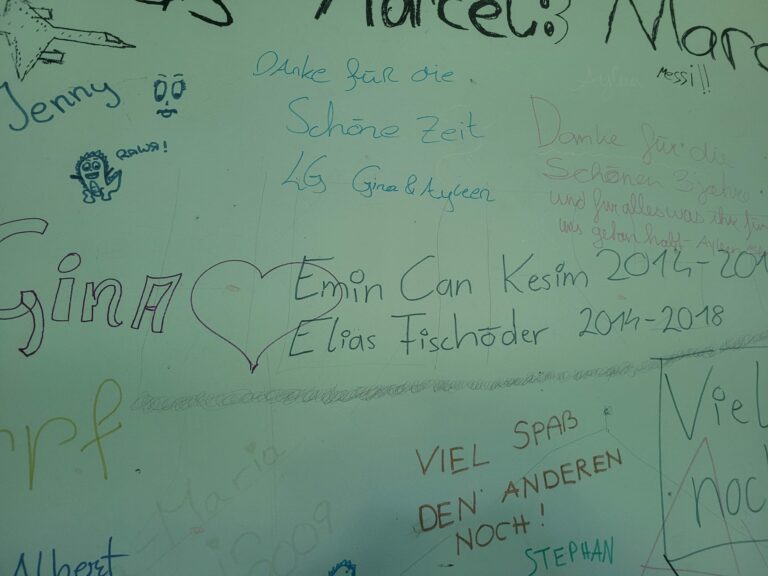 Marcel:3
Jenny
Messi!!
RAWR!
Danke für die
Schöne Zeit
LG Gina & Ayleen
Danke für die
Schönen 3 jahre
und für alles was ihr für
uns getan habt - Ayleen
Gina
Emin Can Kesim 2014-201
Elias Fischöder 2014-2018
Maria
2009
VIEL SPAß
DEN ANDEREN
NOCH!
STEPHAN
Viel
noch
Albert